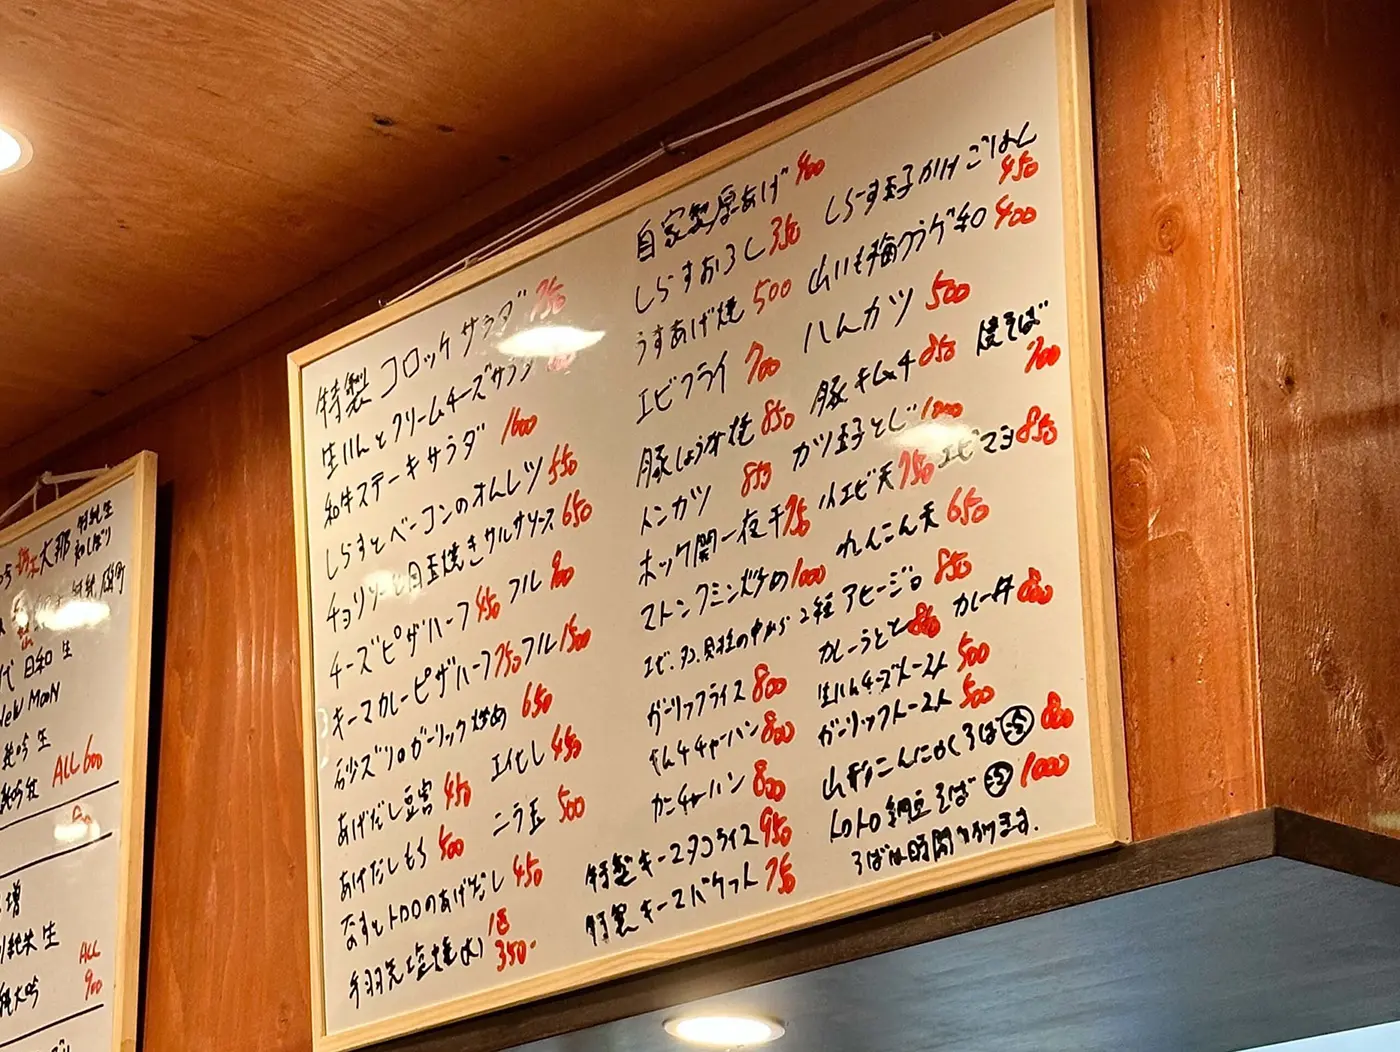 特製コロッケサラダ 750
生ハムとクリームチーズサラダ
和牛ステーキサラダ 1600
しらすとベーコンのオムレツ 550
チョリソーと目玉焼きサルサソース 650
チーズピザハーフ 450 フル 800
キーマカレーピザハーフ 750 フル 1500
砂ズリのガーリック炒め 650
あげだし豆富 450
あげだしもち 500 ニラ玉 500
なすとトロロのあげだし 450
手羽先塩焼(大) 1P 350-
自家製厚あげ 400
しらすおろし 350 しらす玉子かけごはん 450
うすあげ焼 500 山いも梅クラゲ和 400
エビフライ 700 ハムカツ 500
豚しょうが焼 850 豚キムチ 850 焼そば 700
トンカツ 850 カツ玉子とじ 1000
ホッケ開一夜干 750 小エビ天 750 エビマヨ 850
マトンクミン炒め 1000 れんこん天 650
エビ、タコ、貝柱の中から2種アヒージョ 850
ガーリックライス 800 カレーうどん 850 カレー丼 800
キムチチャーハン 800 生ハムチーズトースト 500
カニチャーハン 800 ガーリックトースト 500
特製キーマタコライス 950 山形こんにゃくそば 800
特製キーマバケット 750 トロトロ納豆そば 1000
そばは時間かかります.
大那
日和 生
New MooN
純吟 生
ALL 600
増
純米 生
ALL
900
純大吟